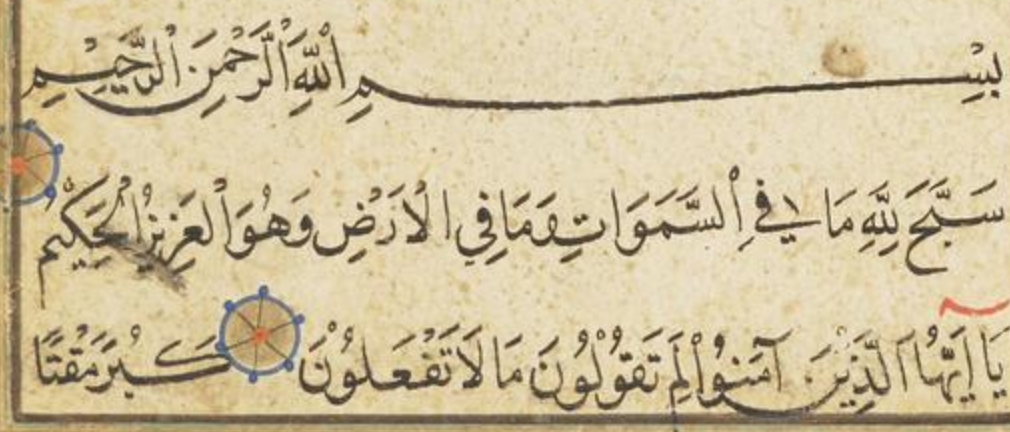 بِسْمِ اللهِ الرَّحْمٰنِ الرَّحِيْمِ
سَبَّحَ لِلّٰهِ مَا فِي السَّمَوَاتِ وَمَا فِي الْاَرْضِ وَهُوَ الْعَزِيْزُ الْحَكِيْمُ
يَا اَيُّهَا الَّذِيْنَ آمَنُوْا لِمَ تَقُوْلُوْنَ مَا لَا تَفْعَلُوْنَ كَبُرَ مَقْتًا